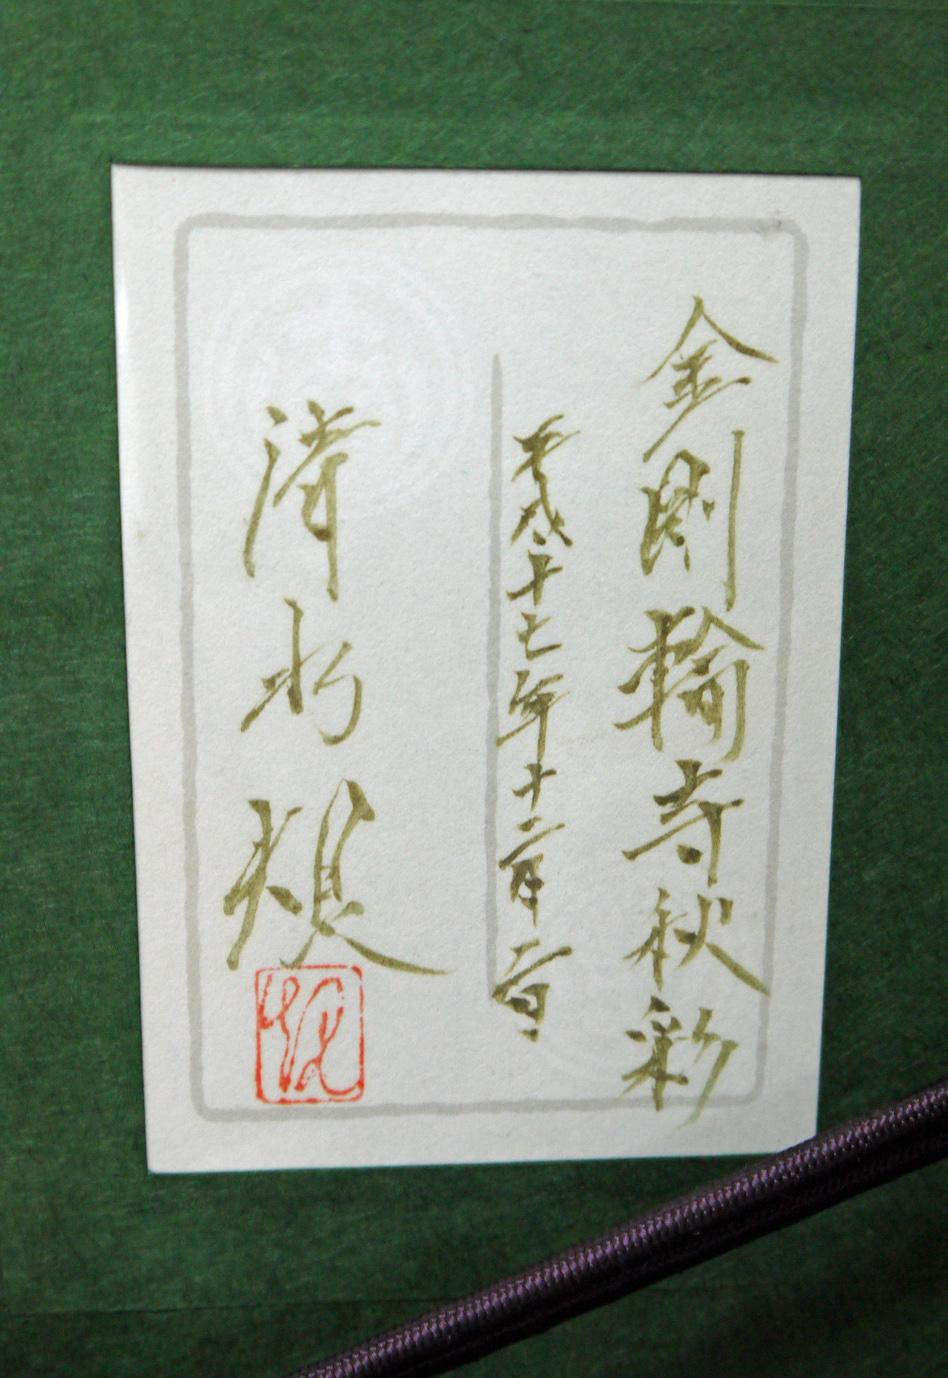 金剛輪寺秋彩
平成十七年十二月一日
清水規
規